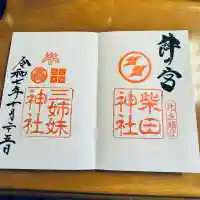 北ノ宮
柴田
神社
三姉妹
神社
令和七年十月二十五日